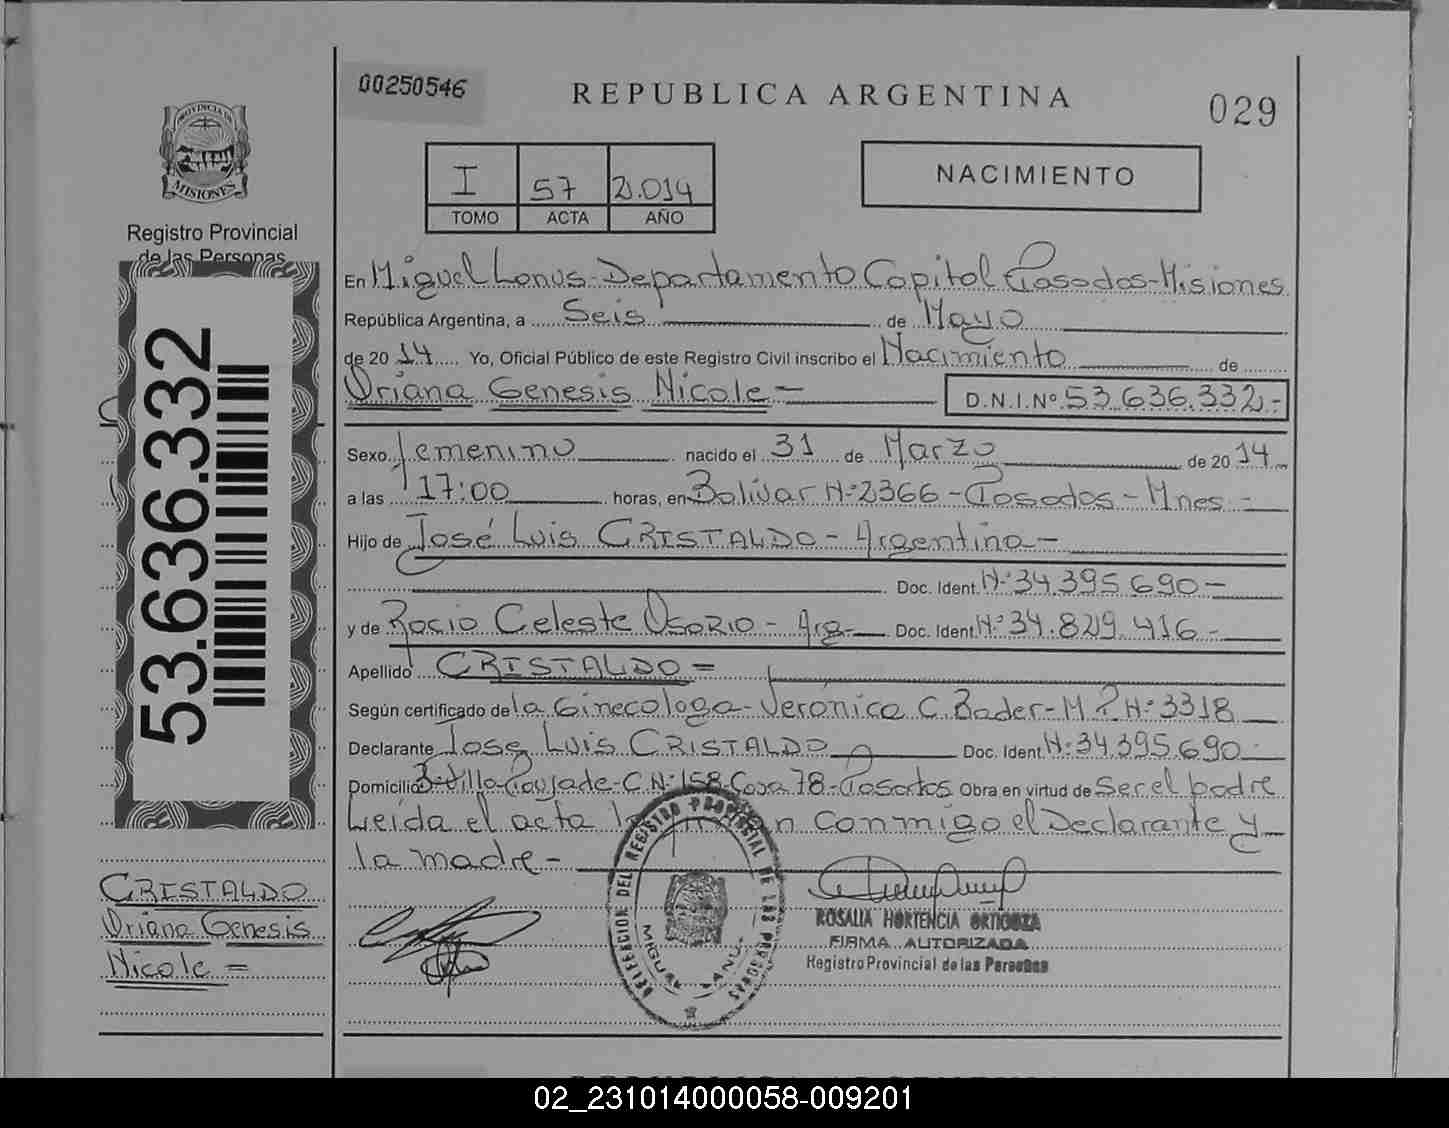 00250546
REPUBLICA ARGENTINA
029
PROVINCIA DE
MISIONES
Registro Provincial
de las Personas
I 57 2.014
TOMO ACTA AÑO
NACIMIENTO
En Miguel Lanus-Departamento Capital Posadas-Misiones
República Argentina, a Seis de Mayo
de 2014 Yo, Oficial Público de este Registro Civil inscribo el Nacimiento de
Oriana Genesis Nicole-
D.N.I.Nº 53.636.332.-
Sexo femenino nacido el 31 de Marzo de 2014
a las 17:00 horas, en Bolívar Nº 2366-Posadas-Mnes.-
Hijo de José Luis CRISTALDO-Argentina-
Doc. Ident. Nº 34.395.690-
y de Rocio Celeste OSORIO-Arg- Doc. Ident. Nº 34.829.416-
Apellido CRISTALDO=
Según certificado de la Ginecologa-Verónica C. Bader-M.P. Nº 3318
Declarante Jose Luis CRISTALDO Doc. Ident. Nº 34.395.690-
Domicilio Bº Villa Poujade-C.Nº 158-Casa 78-Posadas Obra en virtud de Ser el padre
Leída el acta conmigo el Declarante y
la madre-
53.636.332
CRISTALDO
Oriana Genesis
Nicole=
DELEGACION DEL REGISTRO PROVINCIAL DE LAS PERSONAS
MIGUEL LANUS
ROSALIA HORTENCIA
FIRMA AUTORIZADA
Registro Provincial de las Personas
02_231014000058-009201